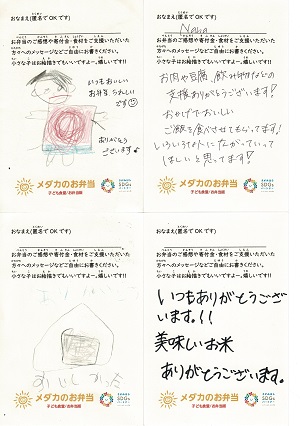 おなまえ(匿名でOKです)
お弁当のご感想や寄付金・食材をご支援いただいた
方々へのメッセージなどご自由にお書きください。
小さな子はお絵描きでもいいですよー、嬉しいです!!
いつもおいしい
お弁当 うれしい
です
ありがとう
ございます
メダカのお弁当
子ども食堂/お弁当版
おなまえ(匿名でOKです)
お弁当のご感想や寄付金・食材をご支援いただいた
方々へのメッセージなどご自由にお書きください。
小さな子はお絵描きでもいいですよー、嬉しいです!!
お肉や豆腐、飲み物などの
支援ありがとうございます!
おかげでおいしい
ご飯を食べさせてもらってます!
いろいろな人につながっていって
ほしいと思ってます!
メダカのお弁当
子ども食堂/お弁当版
SDGs
おなまえ(匿名でOKです)
お弁当のご感想や寄付金・食材をご支援いただいた
方々へのメッセージなどご自由にお書きください。
小さな子はお絵描きでもいいですよー、嬉しいです!!
おいしかった
メダカのお弁当
子ども食堂/お弁当版
おなまえ(匿名でOKです)
お弁当のご感想や寄付金・食材をご支援いただいた
方々へのメッセージなどご自由にお書きください。
小さな子はお絵描きでもいいですよー、嬉しいです!!
いつもありがとうござい
ます。!!
美味しいお米
ありがとうございます。
メダカのお弁当
子ども食堂/お弁当版
SDGs